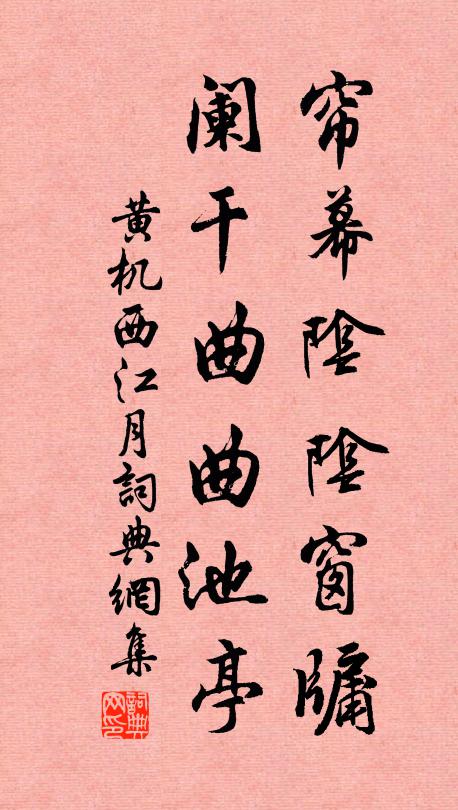 帘幕陰陰窗牖
阑干曲曲池亭
黄机西江月詞典網集
詞典网印